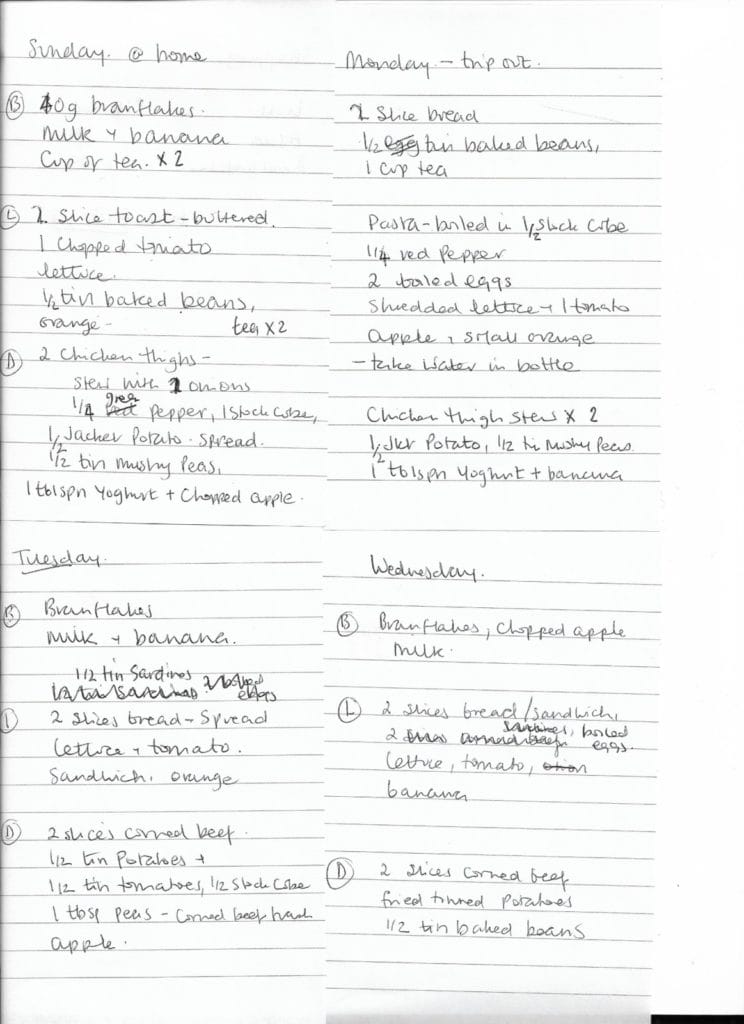 Sunday. @ home
(B) 40g branflakes.
milk + banana
Cup of tea. x 2
(L) 2 Slice toast - buttered.
1 Chopped tomato
lettuce.
1/2 tin baked beans,
orange - tea x 2
(D) 2 Chicken thighs -
stew with 2 onions
1/4 green pepper, 1 Stock Cube,
1/2 Jacket Potato. spread.
1/2 tin mushy Peas,
1 tblspn Yoghurt + Chopped apple.
Monday - trip out.
2 Slice bread
1/2 tin baked beans,
1 cup tea
Pasta - boiled in 1/2 Stock Cube
1/4 red Pepper
2 boiled eggs
Shredded lettuce + 1 tomato
apple + small orange
- take water in bottle
Chicken thigh stew x 2
1/2 Jkt Potato, 1/2 tin Mushy Peas.
1 tblspn Yoghurt + banana
Tuesday.
(B) Branflakes
milk + banana.
1/2 tin Sardines
2 boiled eggs
2 slices bread - Spread
lettuce + tomato.
Sandwich. orange
(D) 2 slices corned beef.
1/2 tin Potatoes +
1/2 tin tomatoes, 1/2 Stock Cube
1 tbsp peas - Corned beef hash
apple.
Wednesday.
(B) Branflakes, Chopped apple
Milk.
(L) 2 slices bread/sandwich,
2 sardines, boiled eggs.
lettuce, tomato,
banana
(D) 2 slices corned beef
fried tinned potatoes
1/2 tin baked beans